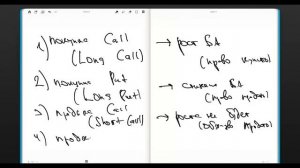 1) покупка Call
(Long Call)
→ рост БА
(право купить)
2) покупка Put
(Long Put)
→ снижение БА
(право продать)
3) продажа Call
(Short Call)
→ роста не будет
(обязан продать)
4) продаж